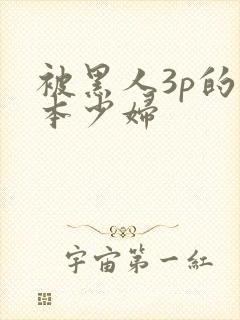 被黑人3p的
本少婦
宇宙第一紅